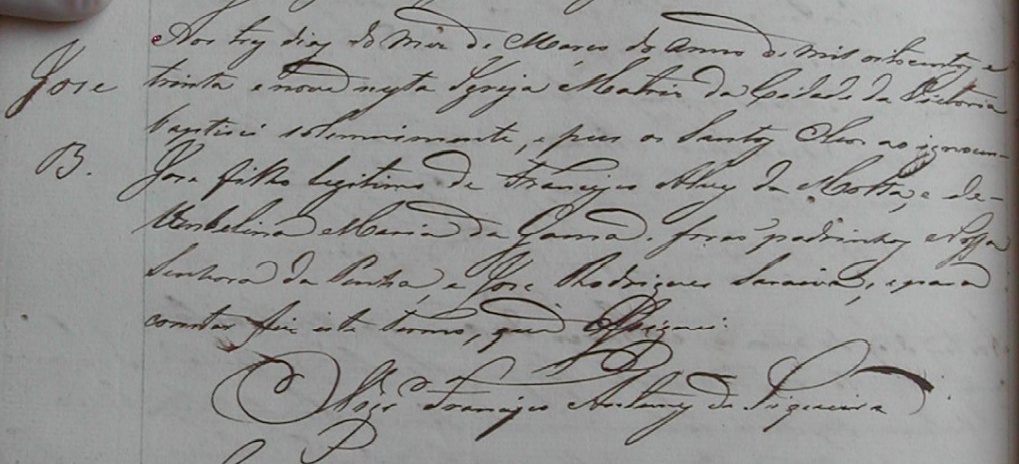 Aos tres dias do mez de Março do anno de mil oitocentos e
Jose
trinta e nove nesta Igreja Matriz da Cidade da Victoria
baptisei solemnimente, e pus os Santos Oleos ao ignocen-
B.
Jose filho legitimo de Francisco Alves da Motta, e de-
Umbelina Maria da Gama. foraõ padrinhos Nossa
Senhora da Penha, e Jose Rodrigues Saraiva, e para
constar fiz este termo, que assignei.
Francisco Antunes de Siqueira